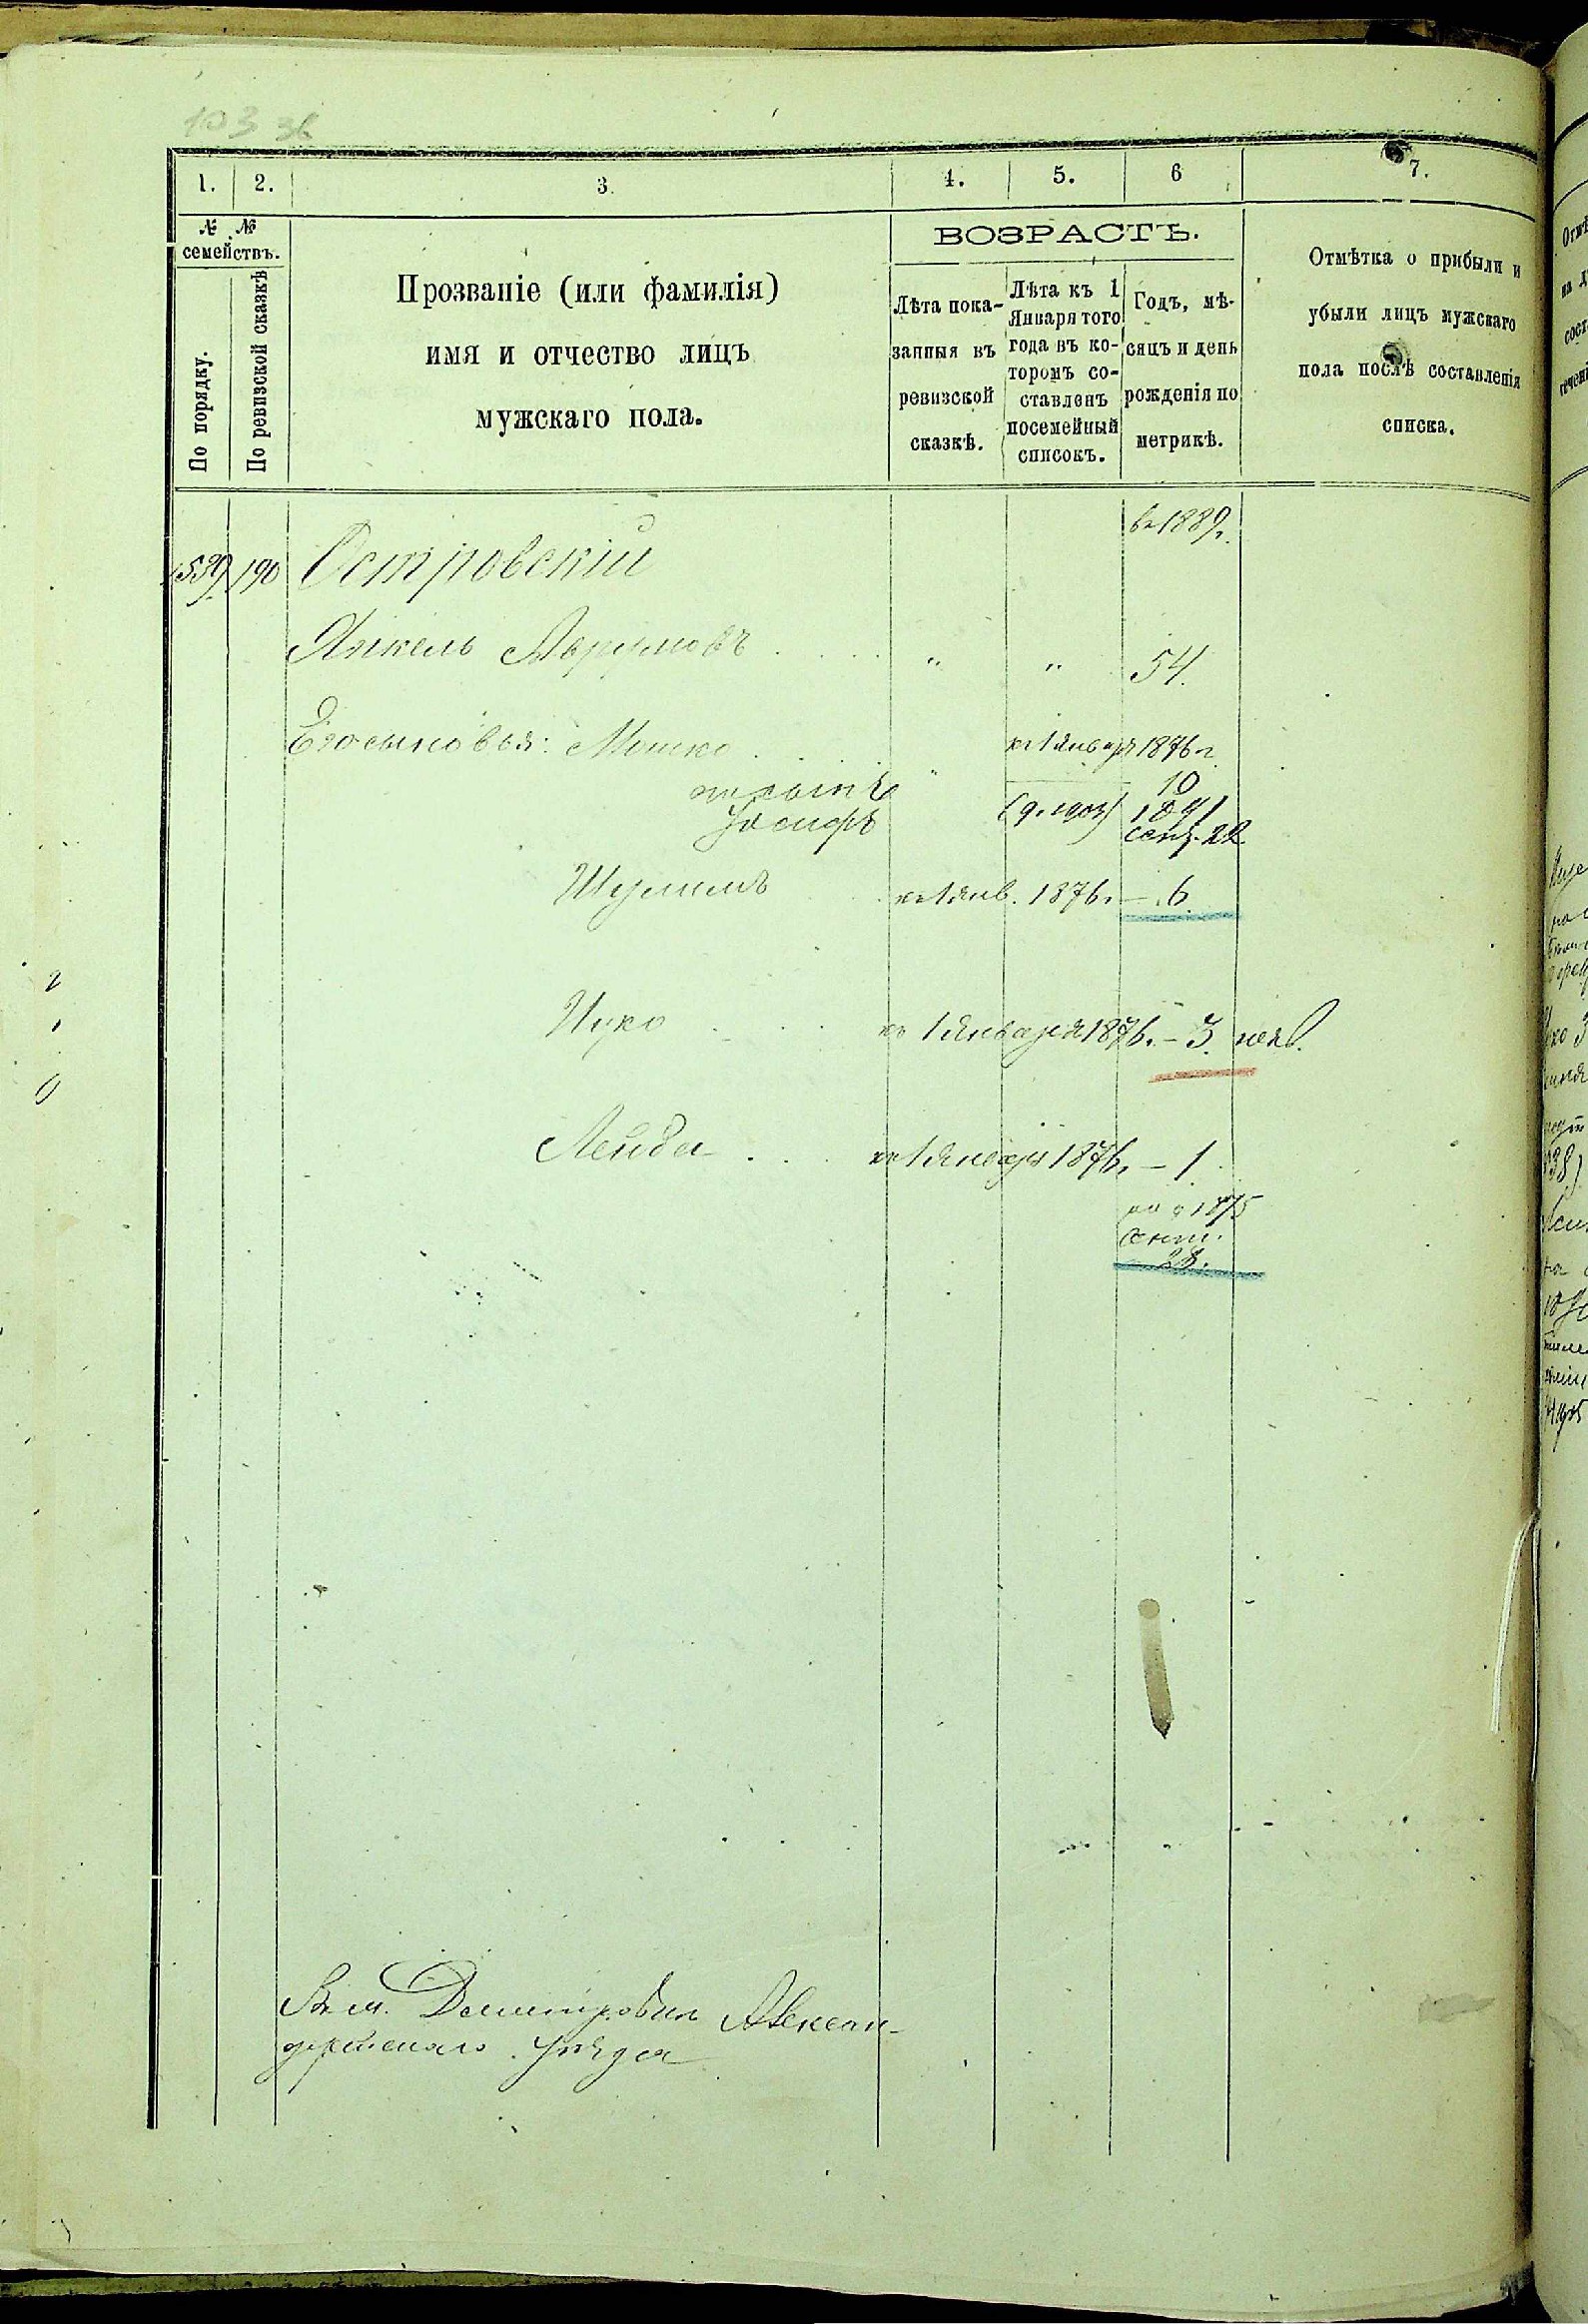 103 зв
1. 2. 3. 4. 5. 6 7.
№ №
семействъ.
По порядку.
По ревизской сказкѣ
Прозваніе (или фамилія)
имя и отчество лицъ
мужскаго пола.
ВОЗРАСТЪ.
Лѣта пока-
занныя въ
ревизской
сказкѣ.
Лѣта къ 1
Января того
года въ ко-
торомъ со-
ставленъ
посемейный
списокъ.
Годъ, мѣ-
сяцъ и день
рожденія по
метрикѣ.
Отмѣтка о прибыли и
убыли лицъ мужскаго
пола послѣ составленія
списка.
въ 1889 г.
539 190 Островскій
Янкель Абрумовъ . . . . " " 54.
Его сыновья: Мошко . къ 1 января 1876 г.
" 10
его сынъ
Іосифъ 1891
сент. 22
Шулимъ . къ 1 янв. 1876 г. – 6.
Ицко . . . къ 1 января 1876. – 3. нояб.
Лейба . . . къ 1 января 1876. – 1.
1875
Сент.
28.
Въ м. Дмитровкѣ Алексан-
дрійскаго уѣзда